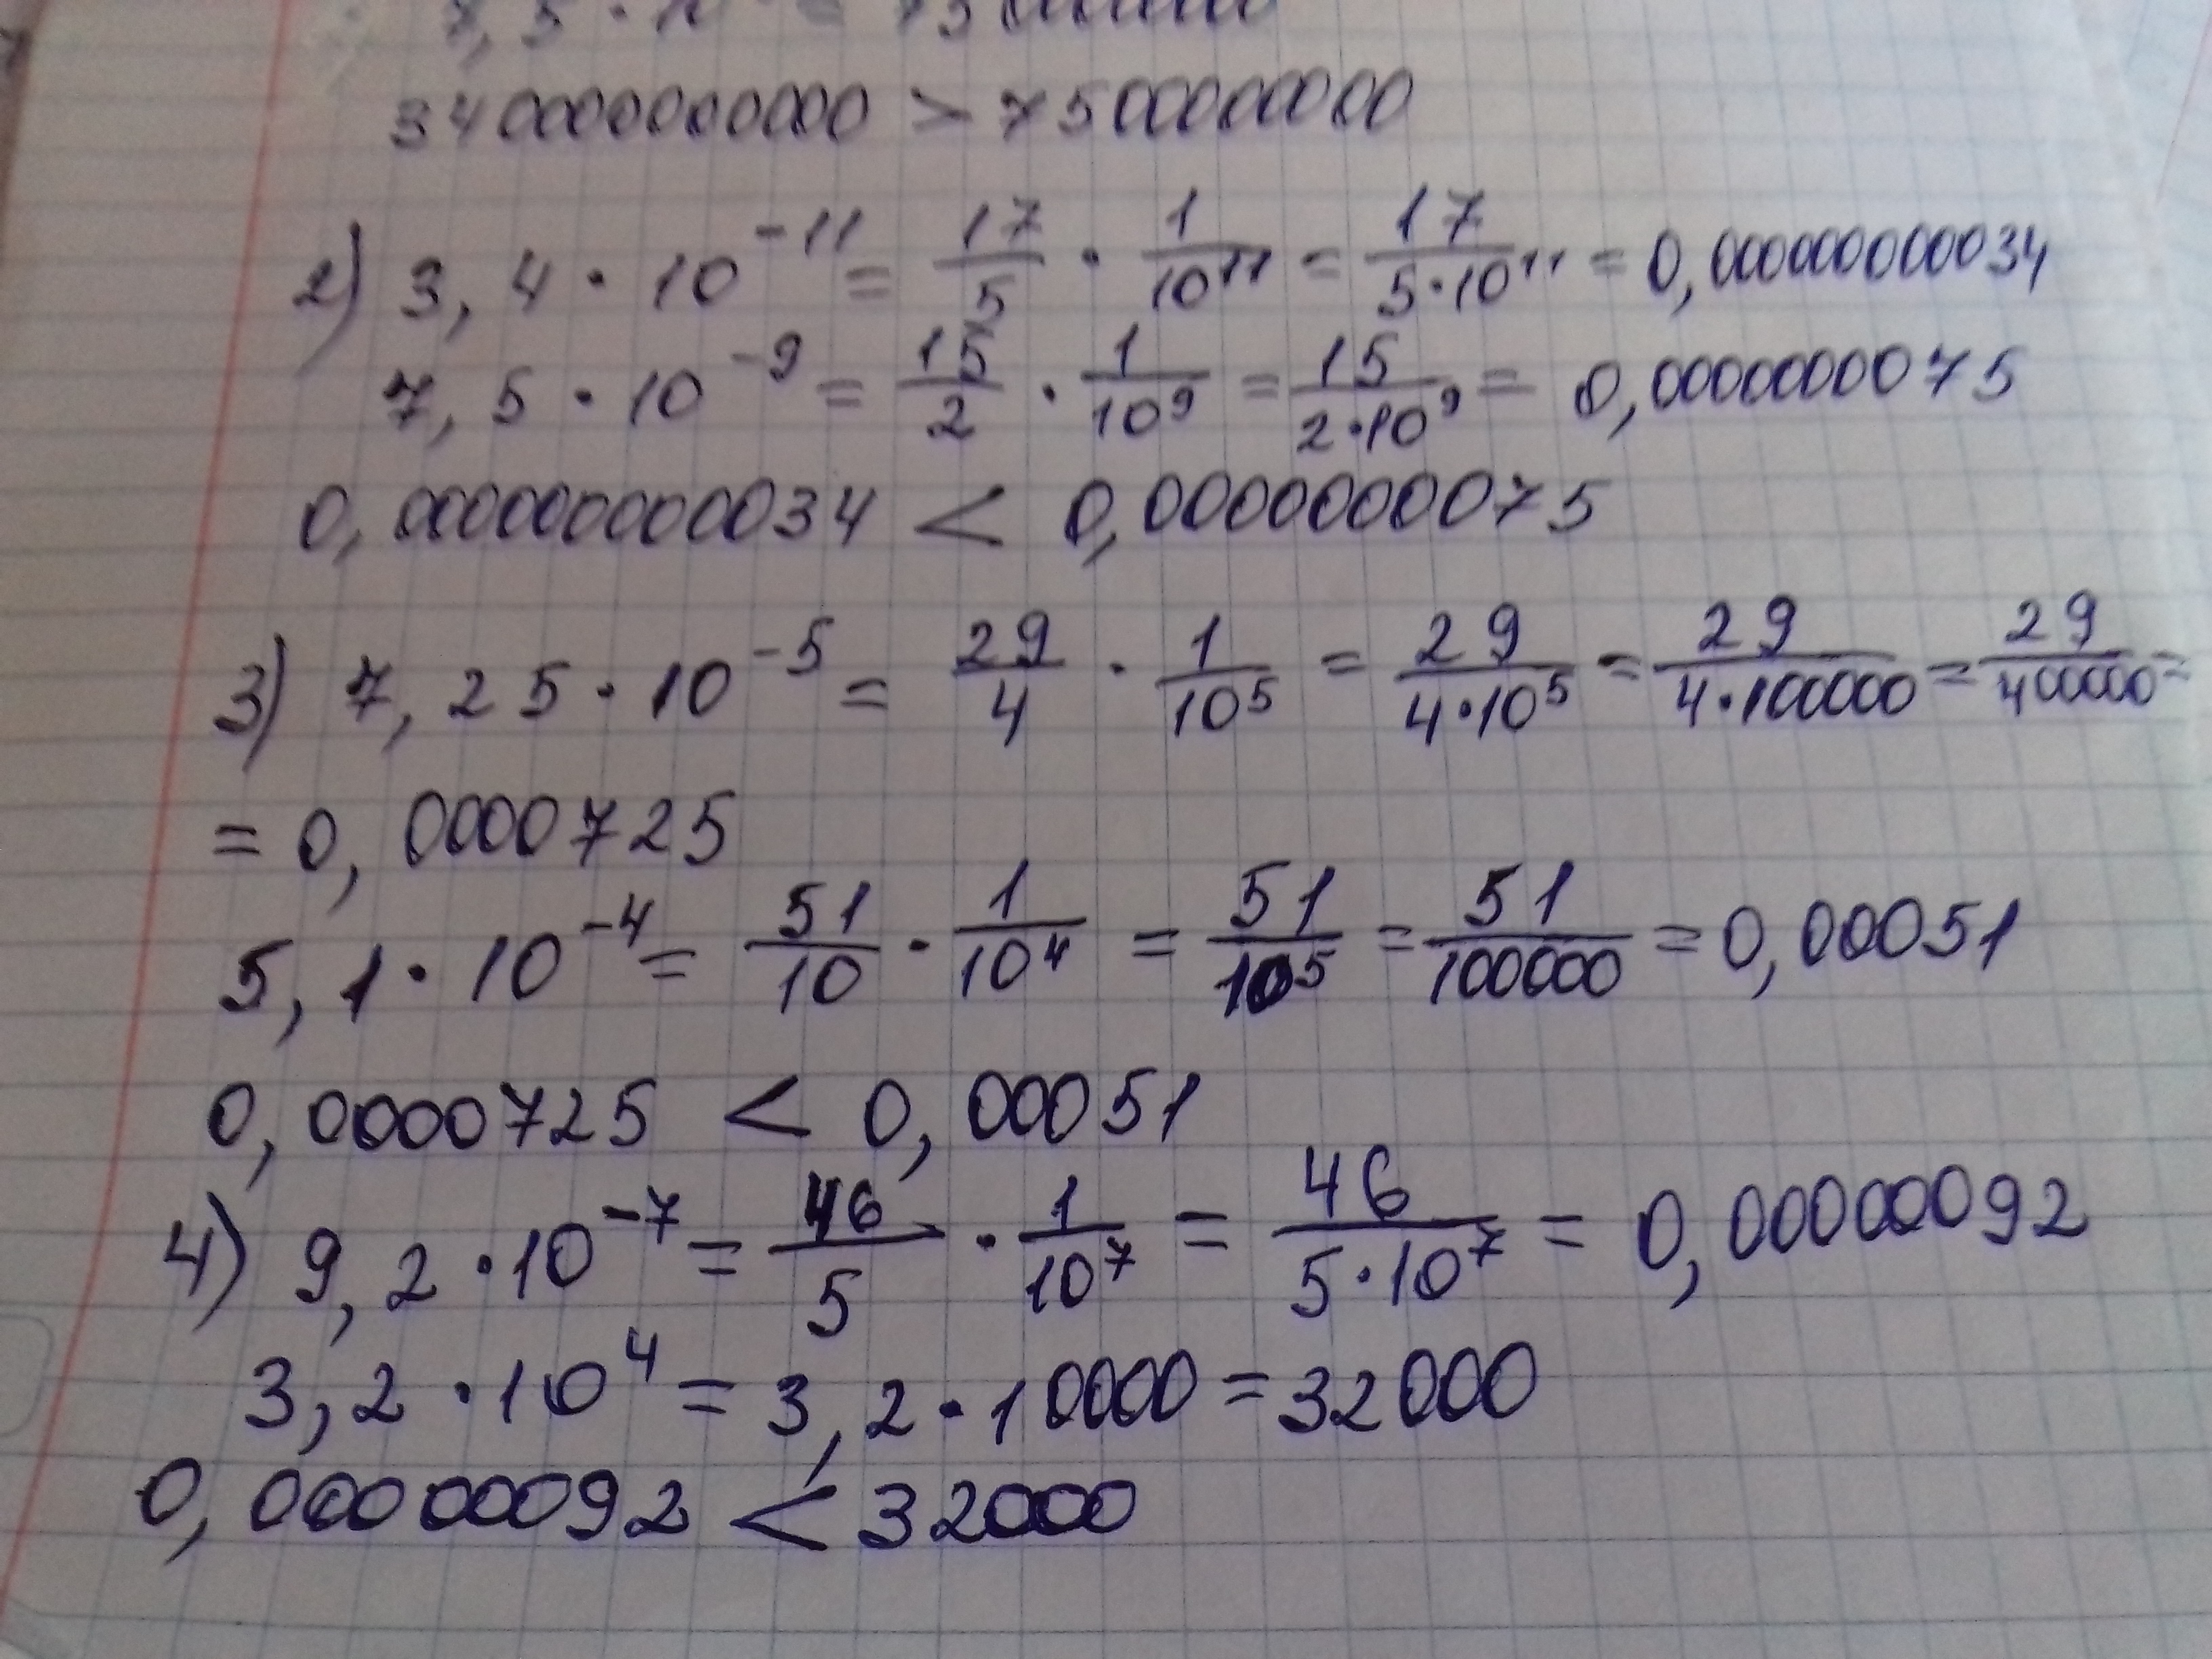 340000000000 > 7500000000
2) 3,4 · 10⁻¹¹ = 17/5 · 1/10¹¹ = 17/(5·10¹¹) = 0,000000000034
7,5 · 10⁻⁹ = 15/2 · 1/10⁹ = 15/(2·10⁹) = 0,0000000075
0,000000000034 < 0,0000000075
3) 7,25 · 10⁻⁵ = 29/4 · 1/10⁵ = 29/(4·10⁵) = 29/(4·100000) = 29/400000 =
= 0,0000725
5,1 · 10⁻⁴ = 51/10 · 1/10⁴ = 51/10⁵ = 51/100000 = 0,00051
0,0000725 < 0,00051
4) 9,2 · 10⁻⁷ = 46/5 · 1/10⁷ = 46/(5·10⁷) = 0,00000092
3,2 · 10⁴ = 3,2 · 10000 = 32000
0,00000092 < 32000